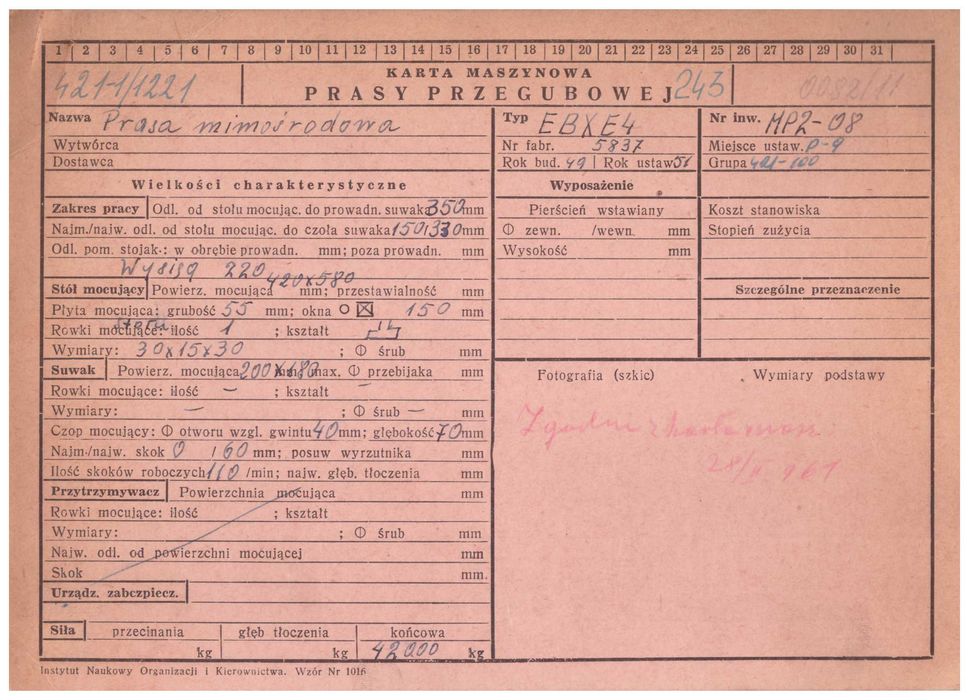 1 2 3 4 5 6 7 8 9 10 11 12 13 14 15 16 17 18 19 20 21 22 23 24 25 26 27 28 29 30 31
421-1/1221
KARTA MASZYNOWA
PRASY PRZEGUBOWEJ 243
0082/11
Nazwa Prasa mimośrodowa
Wytwórca
Dostawca
Typ EBXE4
Nr fabr. 5837
Rok bud. 49 Rok ustaw 51
Nr inw. MP2-08
Miejsce ustaw. P-9
Grupa 421-100
Wielkości charakterystyczne
Zakres pracy Odl. od stołu mocując. do prowadn. suwaka 350 mm
Najm./najw. odl. od stołu mocując. do czoła suwaka 150/330 mm
Odl. pom. stojak.: w obrębie prowadn. mm; poza prowadn. mm
Wysięg 220
Stół mocujący Powierz. mocująca 420x580 mm; przestawialność mm
Płyta mocująca: grubość 55 mm; okna 150 mm
Rowki mocujące: ilość 1 ; kształt
Wymiary: 30x15x30 ; Φ śrub mm
Suwak Powierz. mocująca 200x180 mm; max. Φ przebijaka mm
Rowki mocujące: ilość – ; kształt
Wymiary: – ; Φ śrub – mm
Czop mocujący: Φ otworu wzgl. gwintu 40 mm; głębokość 70 mm
Najm./najw. skok 0 / 60 mm; posuw wyrzutnika mm
Ilość skoków roboczych 110 /min; najw. głęb. tłoczenia mm
Przytrzymywacz Powierzchnia mocująca mm
Rowki mocujące: ilość ; kształt
Wymiary: ; Φ śrub mm
Najw. odl. od powierzchni mocującej mm
Skok mm.
Urządz. zabezpiecz.
Siła przecinania głęb tłoczenia końcowa
kg kg 42000 kg
Wyposażenie
Pierścień wstawiany
Φ zewn. /wewn. mm
Wysokość mm
Koszt stanowiska
Stopień zużycia
Szczególne przeznaczenie
Fotografia (szkic) Wymiary podstawy
Instytut Naukowy Organizacji i Kierownictwa. Wzór Nr 1016